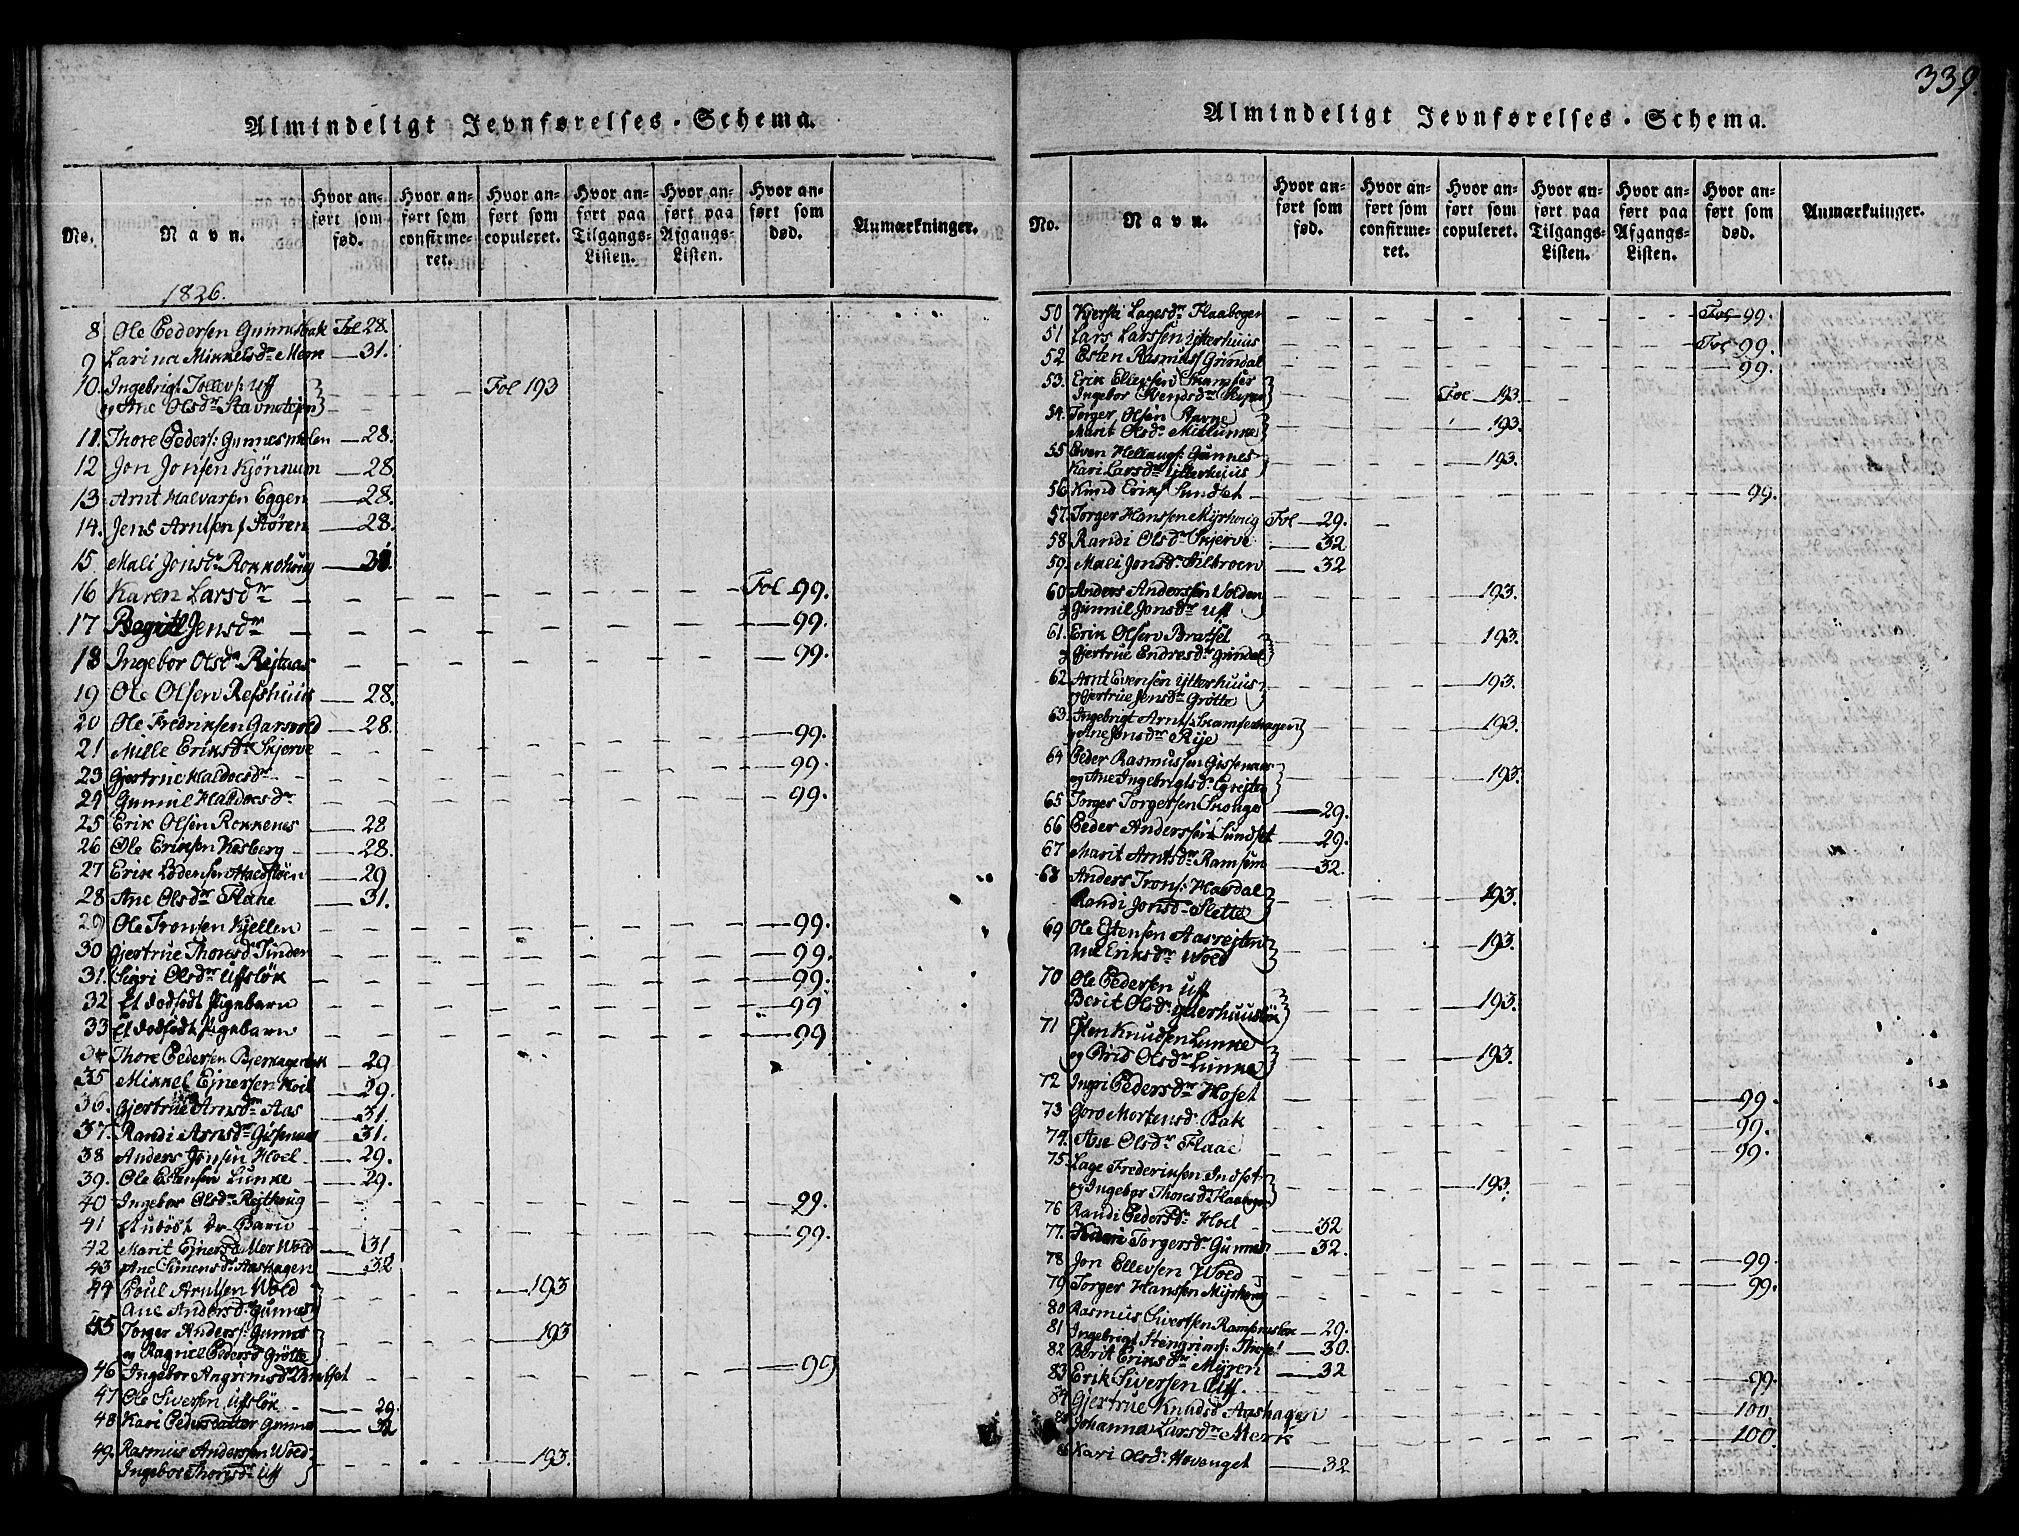 339.
Almindeligt Jevnførelses-Schema.
No. Navn. Hvor anført som fød. Hvor anført som confirmeret. Hvor anført som copuleret. Hvor anført paa Tilgangs-Listen. Hvor anført paa Afgangs-Listen. Hvor anført som død. Anmærkninger.
1826.
8 Ole Pedersen Fol 28.
9 Larina Mikkelsdr Merk 31.
10. Ingebrigt Tollevs: Uff
og Ane Olsdr Fol 193
11. Thore Peders: 28.
12 Jon Jonsen Kjönnum 28
13. Arnt Halvarsen Eggen 28.
14. Jens Arntsen Støren 28.
15 Mali Jonsdr Rokkohoug
16 Karen Larsdr Fol 99.
17 Jensdr 99.
18 Ingebor Olsdr 99.
19 Ole Olsen Refshuus 28.
20 Ole Fredriksen Garsvold 28.
21 Mille Eriksdr Skjerve 99.
23 Gjertrue Haldoesdr 99.
24 Gunnil Haldoesdr 99.
25 Erik Olsen Rokkenes 28
26 Ole Eriksen Kosberg 28.
27 Erik Lodensen 29
28 Ane Olsdr Flaae 31.
29 Ole Tronsen Kjellen 99.
30 Gjertrue Thoresd 99.
31. Sigri Olsdr Ufsløk 99.
32 Et dødfødt Pigebarn 99
33 Et dødfødt Pigebarn 99
34 Thore Pedersen 29
35 Mikkel Ejnersen Hoel 29.
36. Gjertrue Arnsdr Aas 31.
37. Randi Arnsdr 31.
38 Anders Jonsen Hoel 29.
39. Ole Estensen Lunke 29.
40 Ingebor Olsdr 99.
41 Et udøbt Dr-Barn 99.
42 Marit Ejnersd Wold 31
43 Ane Simensdr Aashagen 32
44 Poul Arntsen Wold
Ane Andersd: Gunnes 193
45 Torger Anders: Gunnes
og Ragnil Pedersd Grötte 193
46 Ingebor Angrimsdr 99
47 Ole Siversen Ufsløk 29.
48 Kari Pedersdatter Gunnes 32
49. Rasmus Andersen Wold
Ingebor Thoresdr Uff 193.
Almindeligt Jevnførelses-Schema.
No. Navn. Hvor anført som fød. Hvor anført som confirmeret. Hvor anført som copuleret. Hvor anført paa Tilgangs-Listen. Hvor anført paa Afgangs-Listen. Hvor anført som død. Anmærkninger.
50 Kjersti Lagesdr Flaabogen Fol 99.
51 Lars Larssen Ytterhuus Fol 99.
52 Esten Rasmuss Grindal 99.
53. Erik Ellevsen
Ingebor Svendsdr Fol 193
54. Torger Olsen
Marit Olsdr Midlunke 193.
55 Even Hellaugs: Gunnes
Kari Larsdr Ytterhuus 193.
56. Knud Eriks Sundset 99.
57. Torger Hanssen Myrhoug Fol 29.
58 Randi Olsdr Skjerve 32
59. Mali Jonsdr 32
60 Anders Anderssen Volden
og Gunnil Jonsdr Uff 193.
61. Erik Olsen Bratset
og Gjertrue Endresdr Grindal 193.
62. Arnt Evensen Ytterhuus
og Gjertrue Jensdr Grötte 193.
63. Ingebrigt Arnts: Skamferhagen
og Ane Jonsdr Rije 193.
64 Peder Rasmussen Gissenaas
og Ane Ingebrigtsdr 193.
65 Torger Torgersen 29.
66 Peder Anderssen Sundset 29.
67 Marit Arntsdr Ramsem 32.
68 Anders Trons: Haardal
Randi Jonsdr Slette 193.
69 Ole Estensen Aasrejten
Ane Eriksdr Wold 193.
70 Ole Pedersen Uff
Berit Olsdr Ytterhuusløk 193.
71 Esten Knudsen Lunke
og Olsdr Lunke 193.
72 Ingri Pedersdr Hoset 99.
73 Goro Mortensdr Bak 99.
74. Ane Olsdr Flaae 99.
75. Lage Frederiksen Indset
og Ingebor Thoresdr Flaabogen 193.
76 Randi Pedersdr Hoel 32
77. Torgersdr Gunnes 32.
78 Jon Ellevsen Wold 99.
79 Torger Hanssen Myrhoug 99.
80 Rasmus Siversen Ramsemsløk 29.
81 Ingebrigt Stengrims: 30.
82 Berit Eriksdr Myren 32
83 Erik Siversen Uff 99.
84 Gjertrue Knudsd Aashagen 100.
85 Johanna Larsdr Merk 100.
86 Kari Olsdr Hovenget 32